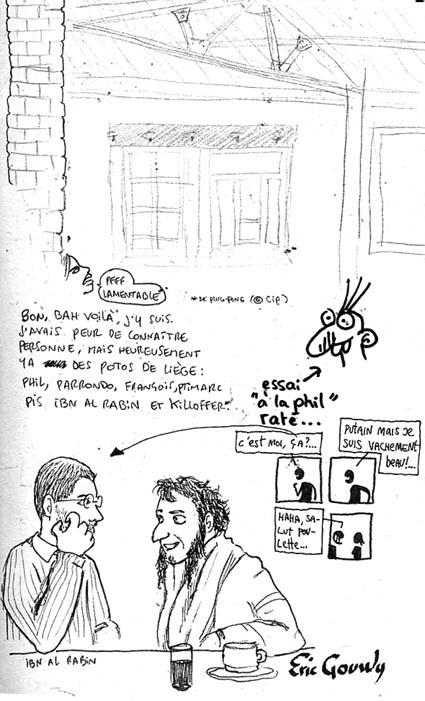 PEFF
LAMENTABLE*
* DE PING-PONG (© Cip)
BON, BAH VOILÀ, J'Y SUIS.
J'AVAIS PEUR DE CONNAÎTRE
PERSONNE, MAIS HEUREUSEMENT
YA DES POTOS DE LIÈGE:
PHIL, PARRONDO, FRANÇOIS, PTIMARC
PIS IBN AL RABIN ET KILLOFFER.
essai
"à la phil"
raté...
C'EST MOI, ÇA?...
PUTAIN MAIS JE
SUIS VACHEMENT
BEAU!...
HAHA, SA-
LUT POU-
LETTE...
IBN AL RABIN
Eric Gouwy